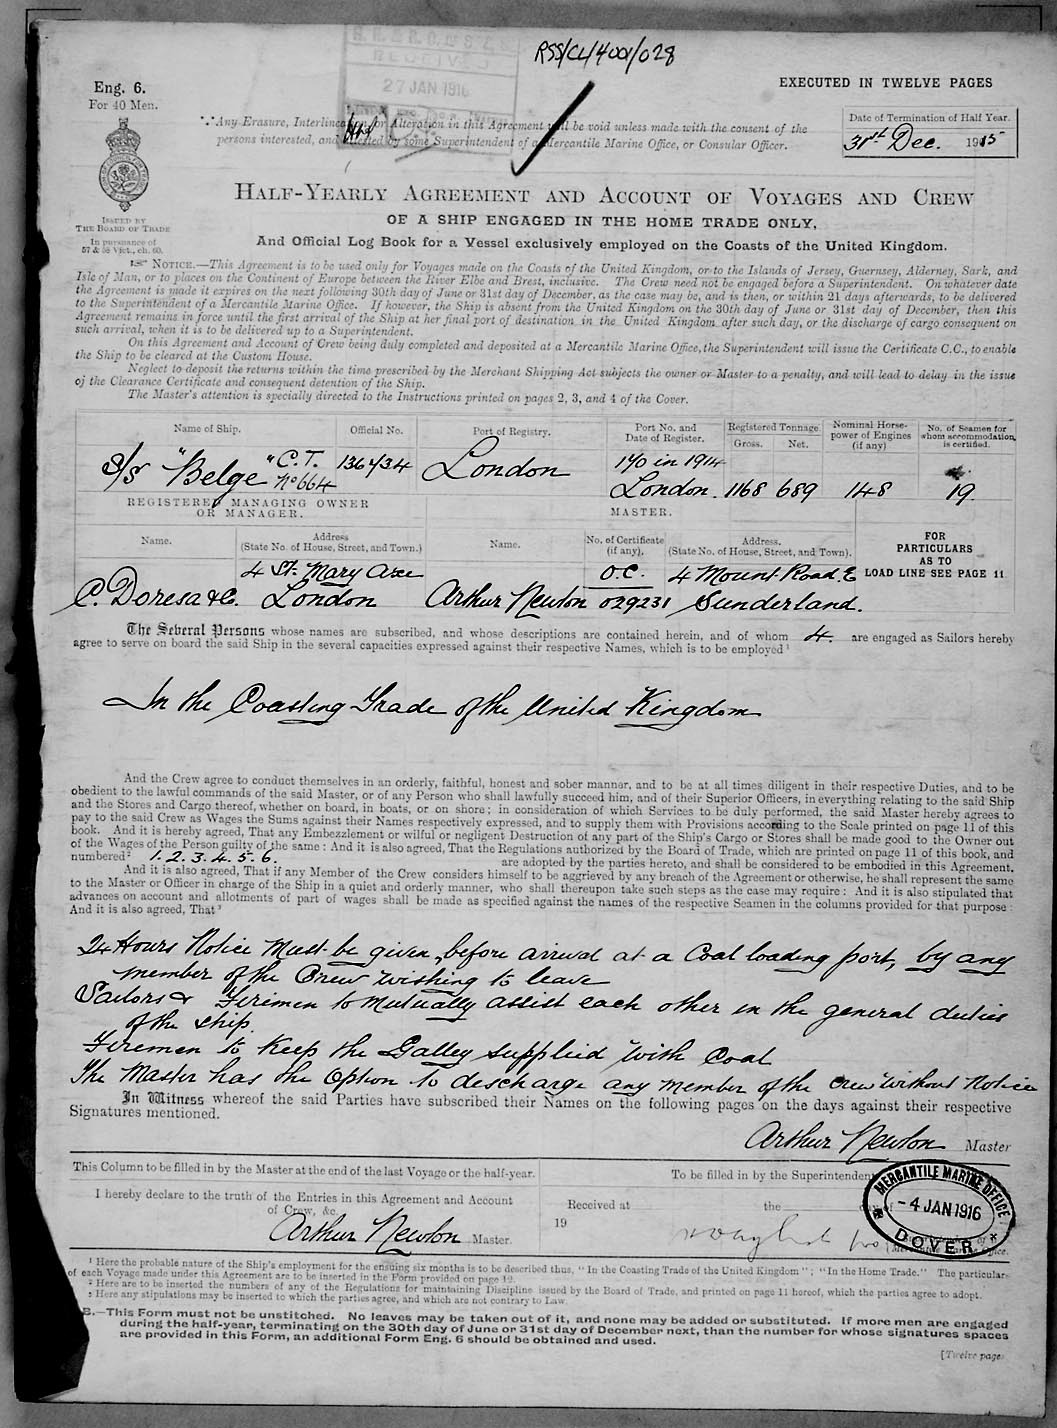 RSS/CL/1400/028
RECEIVED
27 JAN 1916
EXECUTED IN TWELVE PAGES
Eng. 6.
For 40 Men.
Any Erasure, Interlineation or Alteration in this Agreement will be void unless made with the consent of the
persons interested, and attested by some Superintendent of a Mercantile Marine Office, or Consular Officer.
Date of Termination of Half Year.
31st Dec. 1915
ISSUED BY
THE BOARD OF TRADE
In pursuance of
57 & 58 Vict., ch. 60.
HALF-YEARLY AGREEMENT AND ACCOUNT OF VOYAGES AND CREW
OF A SHIP ENGAGED IN THE HOME TRADE ONLY,
And Official Log Book for a Vessel exclusively employed on the Coasts of the United Kingdom.
NOTICE.—This Agreement is to be used only for Voyages made on the Coasts of the United Kingdom, or to the Islands of Jersey, Guernsey, Alderney, Sark, and
Isle of Man, or to places on the Continent of Europe between the River Elbe and Brest, inclusive. The Crew need not be engaged before a Superintendent. On whatever date
the Agreement is made it expires on the next following 30th day of June or 31st day of December, as the case may be, and is then, or within 21 days afterwards, to be delivered
to the Superintendent of a Mercantile Marine Office. If however, the Ship is absent from the United Kingdom on the 30th day of June or 31st day of December, then this
Agreement remains in force until the first arrival of the Ship at her final port of destination in the United Kingdom after such day, or the discharge of cargo consequent on
such arrival, when it is to be delivered up to a Superintendent.
On this Agreement and Account of Crew being duly completed and deposited at a Mercantile Marine Office, the Superintendent will issue the Certificate C.C., to enable
the Ship to be cleared at the Custom House.
Neglect to deposit the returns within the time prescribed by the Merchant Shipping Act subjects the owner or Master to a penalty, and will lead to delay in the issue
of the Clearance Certificate and consequent detention of the Ship.
The Master's attention is specially directed to the Instructions printed on pages 2, 3, and 4 of the Cover.
Name of Ship. Official No. Port of Registry. Port No. and Date of Register. Registered Tonnage Gross. Net. Nominal Horse-power of Engines (if any) No. of Seamen for whom accommodation is certified.
S/S "Belge" C.T. No 664 136434 London 170 in 1914 London. 1168 689 148 19.
REGISTERED MANAGING OWNER
OR MANAGER.
MASTER.
Name. Address (State No. of House, Street, and Town.) Name. No. of Certificate (if any). Address. (State No. of House, Street, and Town).
FOR
PARTICULARS
AS TO
LOAD LINE SEE PAGE 11
4 St. Mary Axe O.C. 4 Mount Road. E
C. Doresa & Co. London Arthur Newton 029231 Sunderland.
The Several Persons whose names are subscribed, and whose descriptions are contained herein, and of whom 4. are engaged as Sailors hereby
agree to serve on board the said Ship in the several capacities expressed against their respective Names, which is to be employed¹
In the Coasting Trade of the United Kingdom
And the Crew agree to conduct themselves in an orderly, faithful, honest and sober manner, and to be at all times diligent in their respective Duties, and to be
obedient to the lawful commands of the said Master, or of any Person who shall lawfully succeed him, and of their Superior Officers, in everything relating to the said Ship
and the Stores and Cargo thereof, whether on board, in boats, or on shore; in consideration of which Services to be duly performed, the said Master hereby agrees to
pay to the said Crew as Wages the Sums against their Names respectively expressed, and to supply them with Provisions according to the Scale printed on page 11 of this
book. And it is hereby agreed, That any Embezzlement or wilful or negligent Destruction of any part of the Ship's Cargo or Stores shall be made good to the Owner out
of the Wages of the Person guilty of the same: And it is also Agreed, That the Regulations authorized by the Board of Trade, which are printed on page 11 of this book, and
numbered² 1. 2. 3. 4. 5. 6. are adopted by the parties hereto, and shall be considered to be embodied in this Agreement.
And it is also agreed, That if any Member of the Crew considers himself to be aggrieved by any breach of the Agreement or otherwise, he shall represent the same
to the Master or Officer in charge of the Ship in a quiet and orderly manner, who shall thereupon take such steps as the case may require: And it is also stipulated that
advances on account and allotments of part of wages shall be made as specified against the names of the respective Seamen in the columns provided for that purpose:
And it is also agreed, That³
24 Hours Notice must be given, before arrival at a Coal loading port, by any
member of the Crew wishing to leave
Sailors & Firemen to mutually assist each other in the general duties
of the ship.
Firemen to keep the Galley supplied with Coal
The Master has the option to discharge any member of the crew without Notice
In Witness whereof the said Parties have subscribed their Names on the following pages on the days against their respective
Signatures mentioned.
Arthur Newton Master
This Column to be filled in by the Master at the end of the last Voyage or the half-year.
To be filled in by the Superintendent
I hereby declare to the truth of the Entries in this Agreement and Account
of Crew, &c.
Arthur Newton Master.
Received at the
19
MERCANTILE MARINE OFFICE
- 4 JAN 1916
DOVER
¹ Here the probable nature of the Ship's employment for the ensuing six months is to be described thus, "In the Coasting Trade of the United Kingdom"; "In the Home Trade." The particulars
of each Voyage made under this Agreement are to be inserted in the Form provided on page 12.
² Here are to be inserted the numbers of any of the Regulations for maintaining Discipline issued by the Board of Trade, and printed on page 11 hereof, which the parties agree to adopt.
³ Here any stipulations may be inserted to which the parties agree, and which are not contrary to Law.
B.—This Form must not be unstitched. No leaves may be taken out of it, and none may be added or substituted. If more men are engaged
during the half-year, terminating on the 30th day of June or 31st day of December next, than the number for whose signatures spaces
are provided in this Form, an additional Form Eng. 6 should be obtained and used.
[Twelve pages